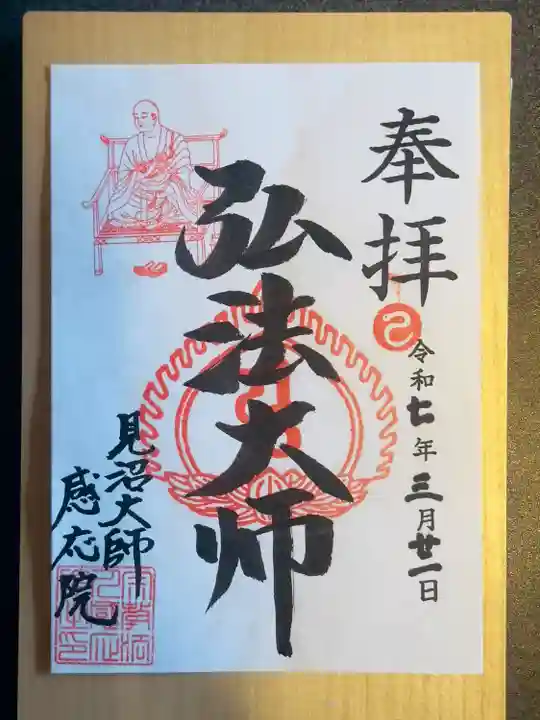 奉拝
令和七年三月廿一日
弘法大师
見沼大師
感応院